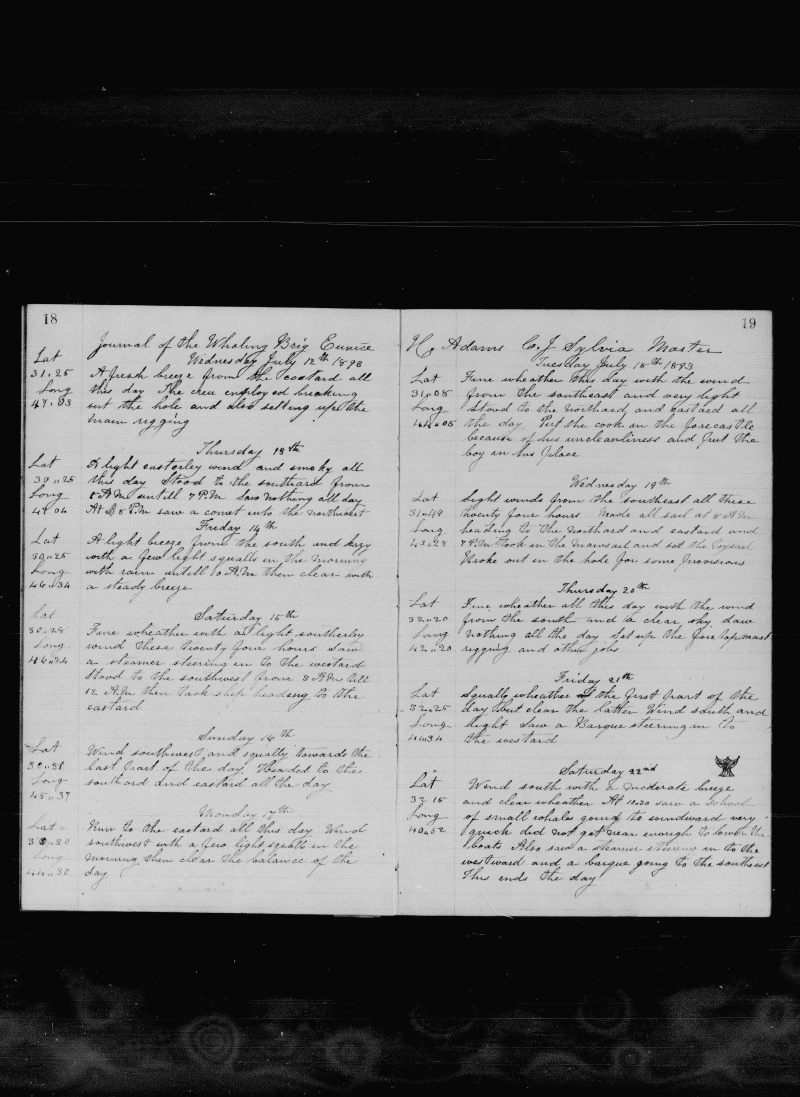 18
Journal of the Whaling Brig Eunice
Wednesday July 12th 1893
Lat
31.25
Long
47.03
A fresh breeze from the eastard all
this day The crew employed breaking
out the hole and also setting up the
main rigging
Thursday 13th
Lat
30.25
Long
48.04
A light easterley wind and smoky all
this day Stood to the southard from
8 A.M. untill 7 P.M. Saw nothing all day
At 8 P.M. saw a comet into the northwest
Friday 14th
Lat
30.25
Long
46.34
A light breeze from the south and hazy
with a few light squalls in the morning
with rain untill 10 A.M. then clear with
a steady breeze
Saturday 15th
Lat
30.28
Long.
46.24
Fine wheather with a light southerley
wind these twenty four hours Saw
a steamer steering in to the westard
Stood to the southwest from 8 A.M. till
12 A.M. then tack ship heading to the
eastard
Sunday 16th
Lat
30.31
Long
45.37
Wind southwest and squally towards the
last part of the day Headed to the
southard and eastard all the day
Monday 17th
Lat
30.30
Long
44.30
Run to the eastard all this day Wind
southwest with a few light squalls in the
morning then clear the balance of the
day
19
H. Adams C. J. Sylvia Master
Tuesday July 18th 1893
Lat
31.08
Long
44.05
Fine wheather this day with the wind
from the southeast and very light
Stood to the northard and eastard all
the day Put the cook in the forecastle
because of his uncleanliness and put the
boy in his place
Wednesday 19th
Lat
31.49
Long
43.28
Light winds from the southeast all these
twenty four hours Made all sail at 8 A.M.
heading to the northard and eastard and
7 P.M. took in the mainsail and set the trysail
Broke out in the hole for some provisions
Thursday 20th
Lat
32.20
Long
42.20
Fine wheather all this day with the wind
from the south and a clear sky Saw
nothing all the day Set up the fore topmast
rigging and other jobs
Friday 21st
Lat
32.25
Long
41.34
Squally wheather the first part of the
day but clear the latter Wind south and
light Saw a Barque steering in to
the westard
Saturday 22nd
Lat
32.15
Long
40.52
Wind south with a moderate breeze
and clear wheather At 10.30 saw a school
of small whales going to windward very
quick did not get near enough to lower the
boats Also saw a steamer steering in to the
westward and a barque going to the southeast
Thus ends the day